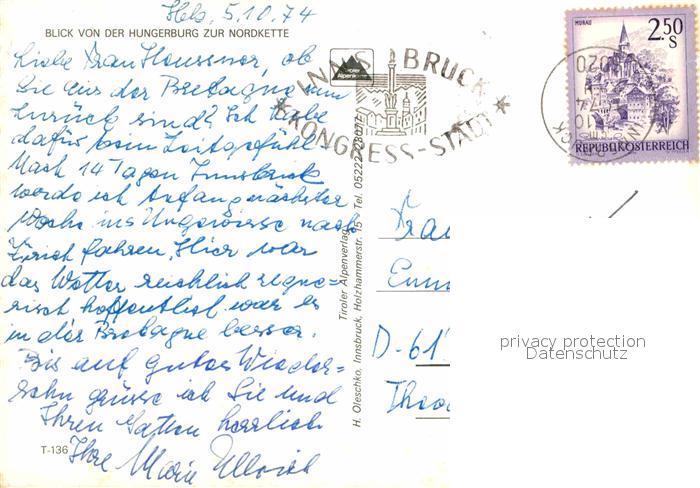 5.10.74
BLICK VON DER HUNGERBURG ZUR NORDKETTE
Liebe Frau Haussner, ob
Sie aus der Bretagne nun
zurück sind? Ich habe
dafür kein Zeitgefühl
Nach 14 Tagen Innsbruck
werde ich Anfang nächster
Woche ins Ungewisse nach
Zürich fahren. Hier war
das Wetter reichlich regne=
risch hoffentlich war es
in der Bretagne besser.
Bis auf gutes Wieder=
sehn grüsse ich Sie und
Ihren Gatten herzlich
Ihre Marie Ullrich
T-136
Tiroler Alpenverlag
H. Oleschko, Innsbruck, Holzhammerstr. 15 Tel. 05222-28077
Tiroler Alpenkarte
INNSBRUCK
KONGRESS-STADT
MURAU
2.50
S
REPUBLIK ÖSTERREICH
6020
INNSBRUCK
Frau
D-61
privacy protection
Datenschutz